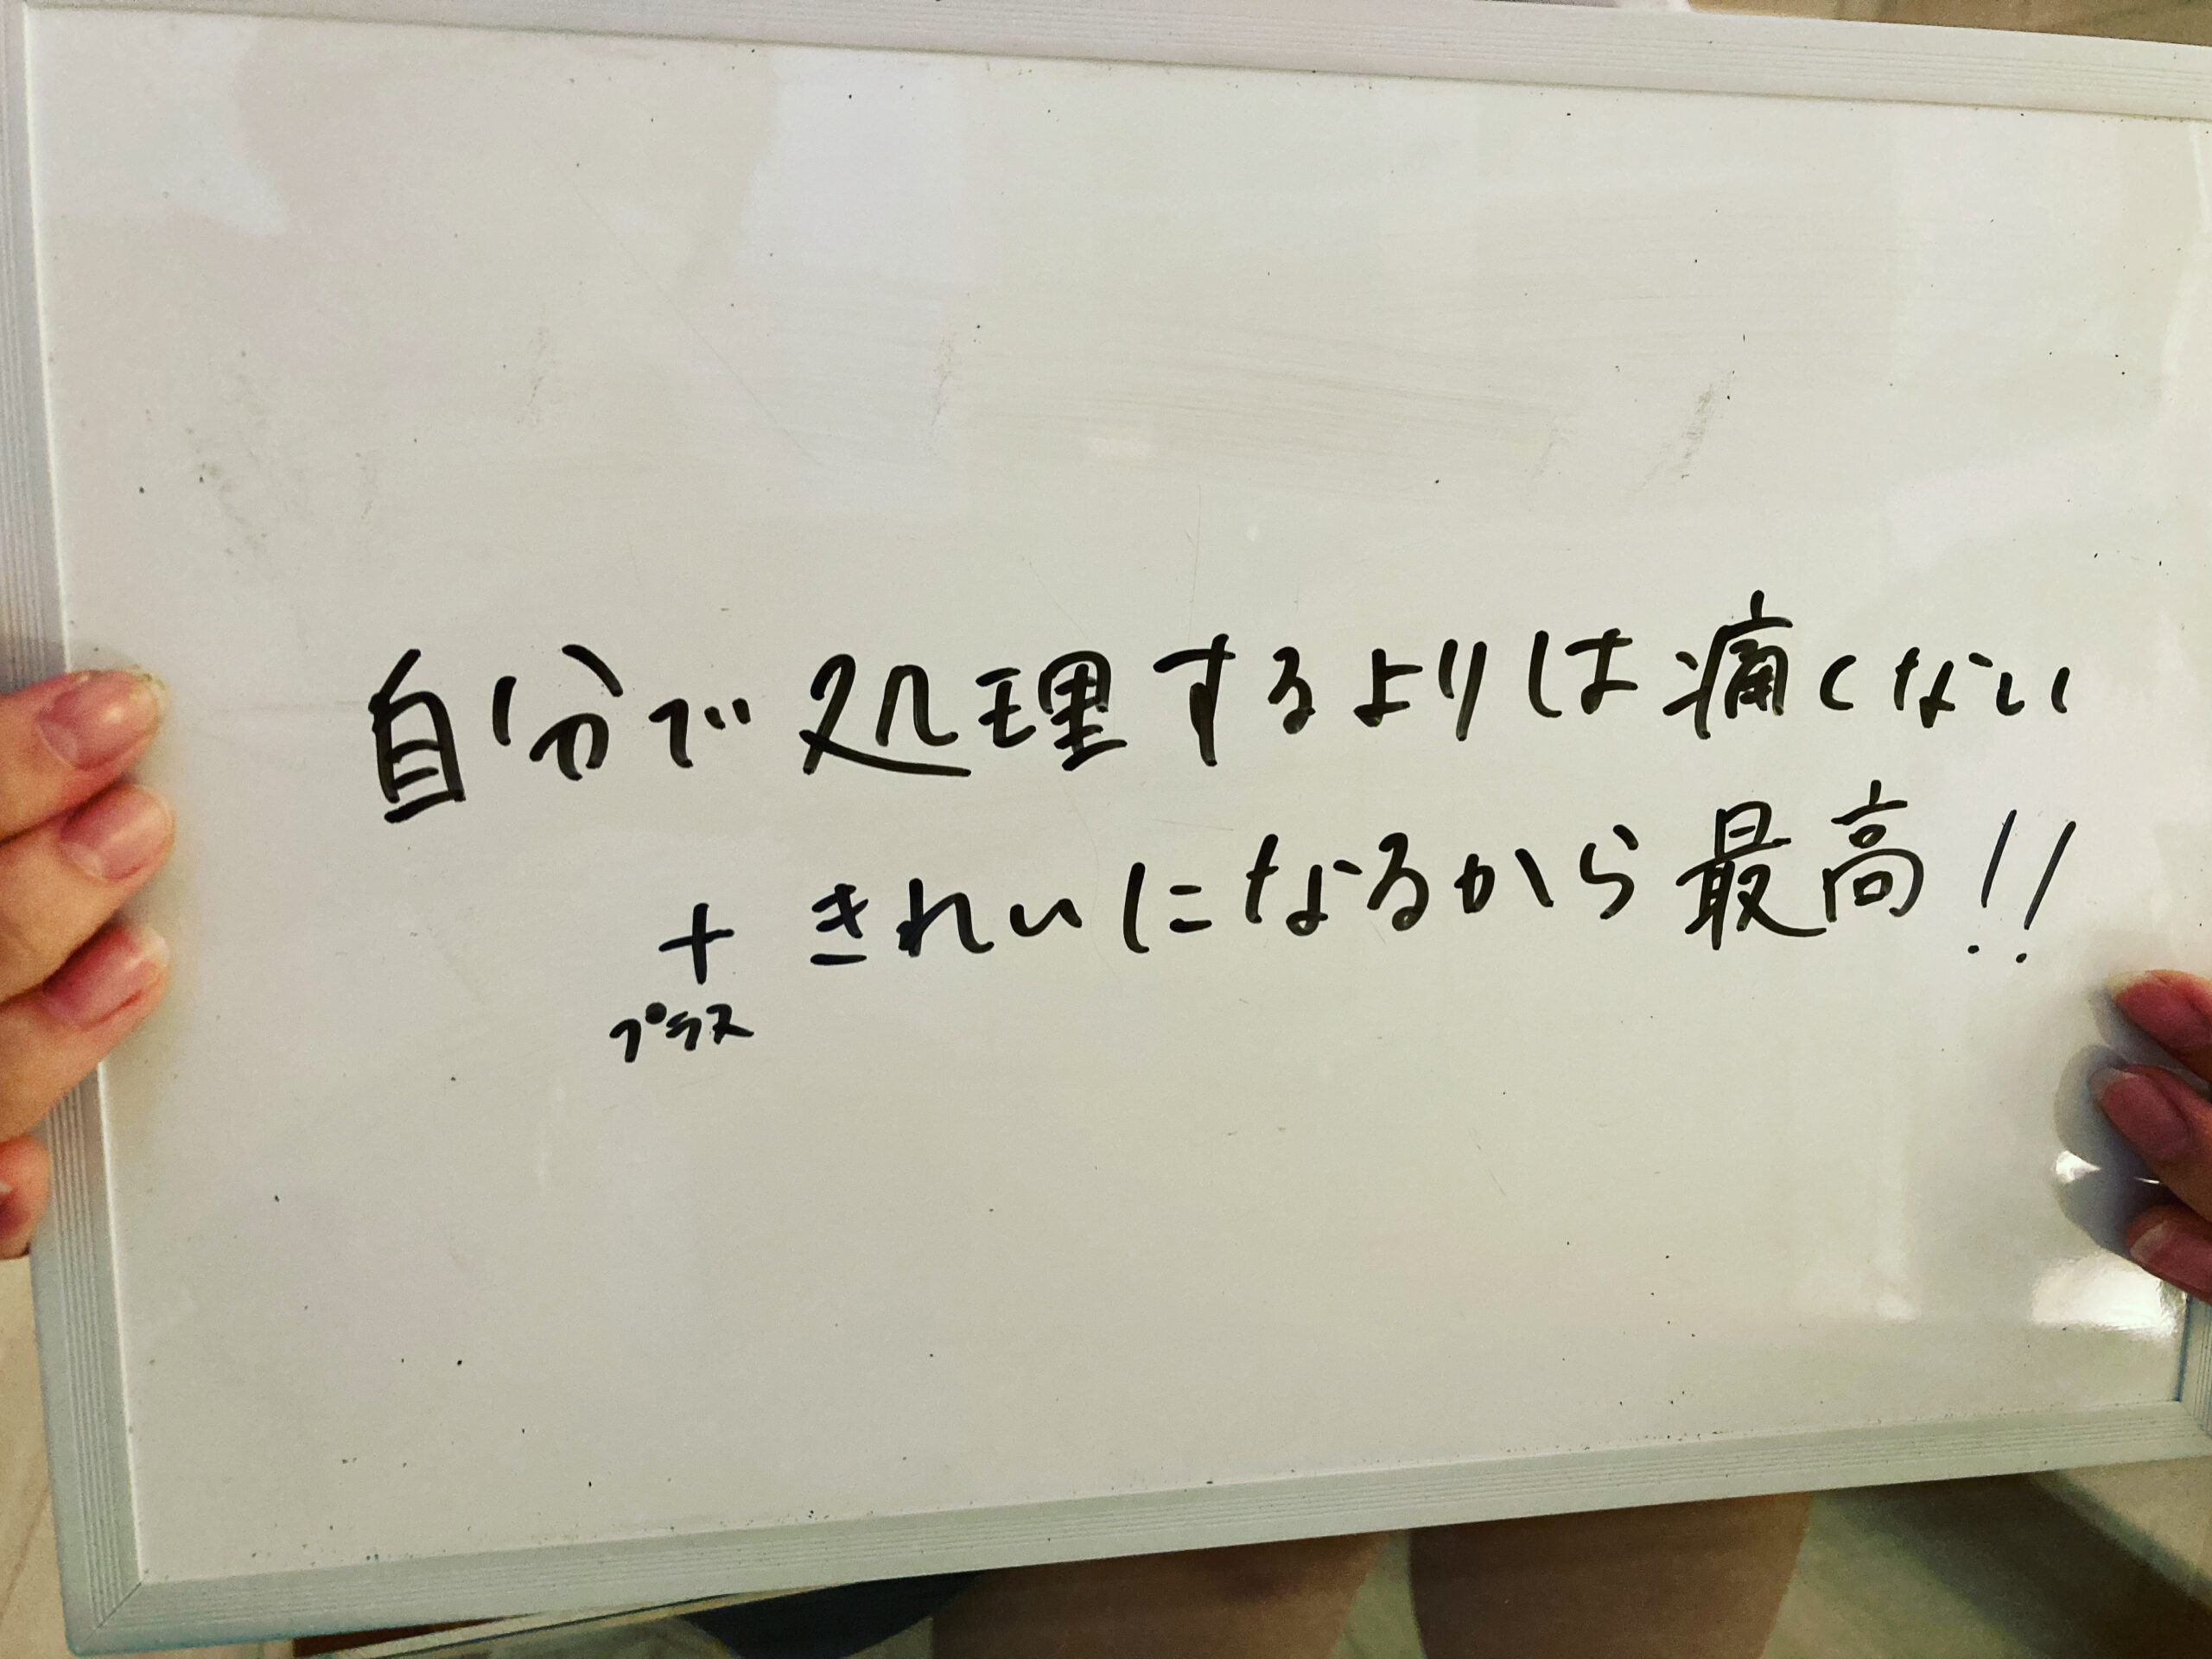 自分で処理するよりは痛くない
+ きれいになるから最高!!
プラス